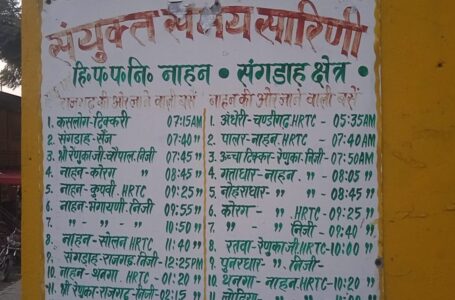 संयुक्त समय सारिणी
हि॰प॰प॰नि॰ नाहन • संगडाह क्षेत्र •
राजगढ़ की ओर जाने वाली बसें
1. कसलोग-टिक्करी 07:15AM
2. संगडाह-सैंज 07:40 ''
3. श्री रेणुकाजी-चौपाल.निजी 07:45 ''
4. नाहन-कोरग '' 08:45 ''
5. नाहन-कुपवी.HRTC 09:25 ''
6. नाहन-गंगायणी.निजी 09:55 ''
7. '' - '' - '' 10:50 ''
8. नाहन-सोलन HRTC 11:40 ''
9. संगडाह-राजगढ.निजी-12:25PM
10. नाहन-थनगा.HRTC-01:20 ''
11. श्री रेणुका-राजगढ.निजी-02:15 ''
नाहन की ओर जाने वाली बसें
1. अंधेरी-चण्डीगढ़.HRTC - 05:35AM
2. पालर-नाहन.HRTC - 07:40AM
3. ऊच्चा टिक्कर-रेणुका-निजी-07:50AM
4. गत्ताधार-नाहन. '' - 08:05 ''
5. नोहराधार- '' '' - 08:45 ''
6. कोरग - '' .HRTC -09:25 ''
7. '' - '' .निजी - 09:40 ''
8. रतवा-रेणुकाजी.HRTC-10:00 ''
9. पुनरधार- ''.निजी-
10. थनगा-नाहन.HRTC-10:20 ''